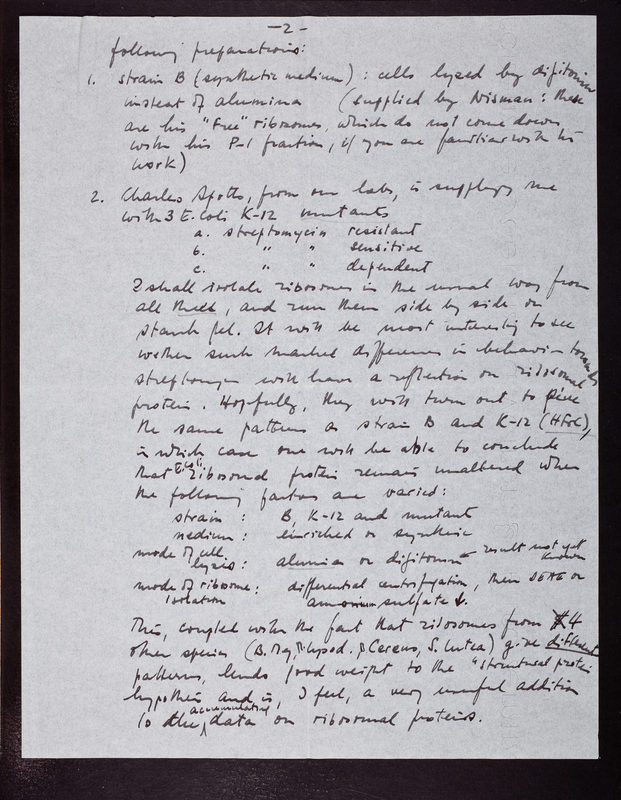 -2-
following preparations:
1. strain B (synthetic medium): cells lysed by digitonin
insteat of alumina (supplied by Nisman: these
are his "free" ribosomes, which do not come down
with his P-1 fraction, if you are familiar with his
work)
2. Charles Spotts, from our labs, is supplying me
with 3 E. Coli K-12 mutants
a. streptomycin resistant
b. " " sensitive
c. " " dependent
I shall isolate ribosomes in the usual way from
all three, and run them side by side on
starch gel. It will be most interesting to see
wether such marked difference in behavior towards
streptomycin will have a reflection on ribosomal
protein. Hopfully, they will turn out to give
the same patterns as strain B and K-12 (HfrC),
in which case one will be able to conclude
that E. Coli ribosomal protein remains unaltered when
the following factors are varied:
strain : B, K-12 and mutant
medium : enriched or synthetic
mode of cell lysis : alumina or digitonin ← result not yet known
mode of ribosome isolation : differential centrifugation, then DEAE or
ammonium sulfate ↓.
This, coupled with the fact that ribosomes from 4
other species (B. Meg, Cereus, S. lutea) give different
patterns, lends good weight to the "structural protein
hypothesis and is, I feel, a very useful addition
to the accumulating data on ribosomal proteins.